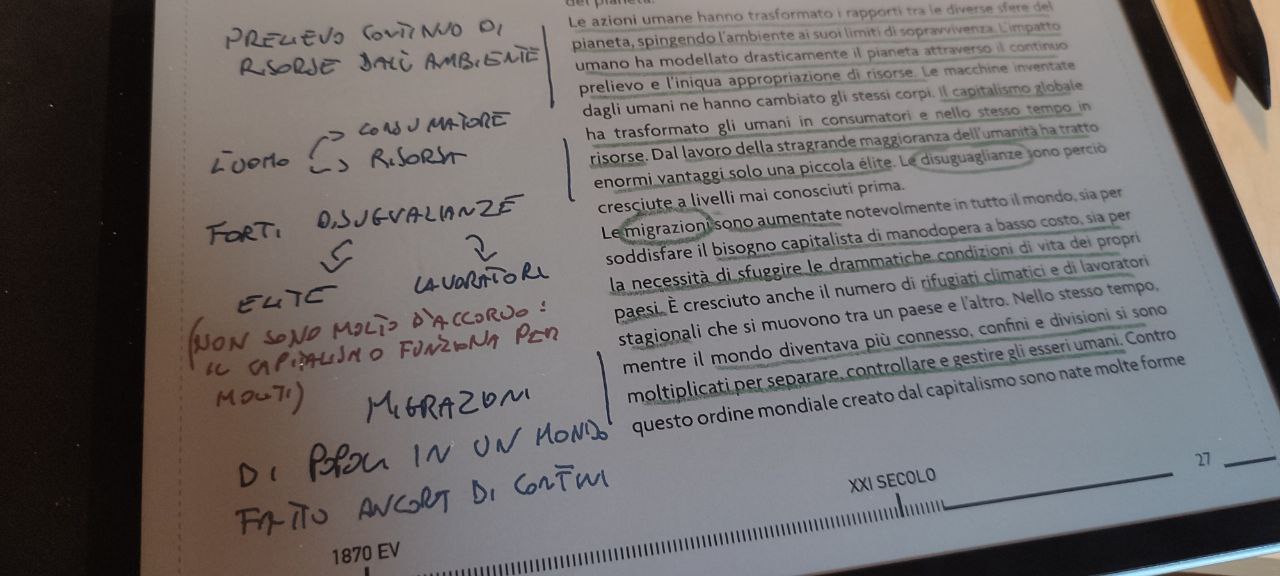 PRELIEVO CONTINUO DI
RISORSE DALL'AMBIENTE
L'UOMO
CONSUMATORE
RISORSA
FORTI DISUGUALIANZE
ELITE
LAVORATORI
(NON SONO MOLTO D'ACCORDO:
IL CAPITALISMO FUNZIONA PER
MOLTI)
MIGRAZIONI
DI POPOLI IN UN MONDO
FATTO ANCORA DI CONFINI
del pianeta.
Le azioni umane hanno trasformato i rapporti tra le diverse sfere del
pianeta, spingendo l'ambiente ai suoi limiti di sopravvivenza. L'impatto
umano ha modellato drasticamente il pianeta attraverso il continuo
prelievo e l'iniqua appropriazione di risorse. Le macchine inventate
dagli umani ne hanno cambiato gli stessi corpi. Il capitalismo globale
ha trasformato gli umani in consumatori e nello stesso tempo in
risorse. Dal lavoro della stragrande maggioranza dell'umanità ha tratto
enormi vantaggi solo una piccola élite. Le disuguaglianze sono perciò
cresciute a livelli mai conosciuti prima.
Le migrazioni sono aumentate notevolmente in tutto il mondo, sia per
soddisfare il bisogno capitalista di manodopera a basso costo, sia per
la necessità di sfuggire le drammatiche condizioni di vita dei propri
paesi. È cresciuto anche il numero di rifugiati climatici e di lavoratori
stagionali che si muovono tra un paese e l'altro. Nello stesso tempo,
mentre il mondo diventava più connesso, confini e divisioni si sono
moltiplicati per separare, controllare e gestire gli esseri umani. Contro
questo ordine mondiale creato dal capitalismo sono nate molte forme
27
XXI SECOLO
1870 EV